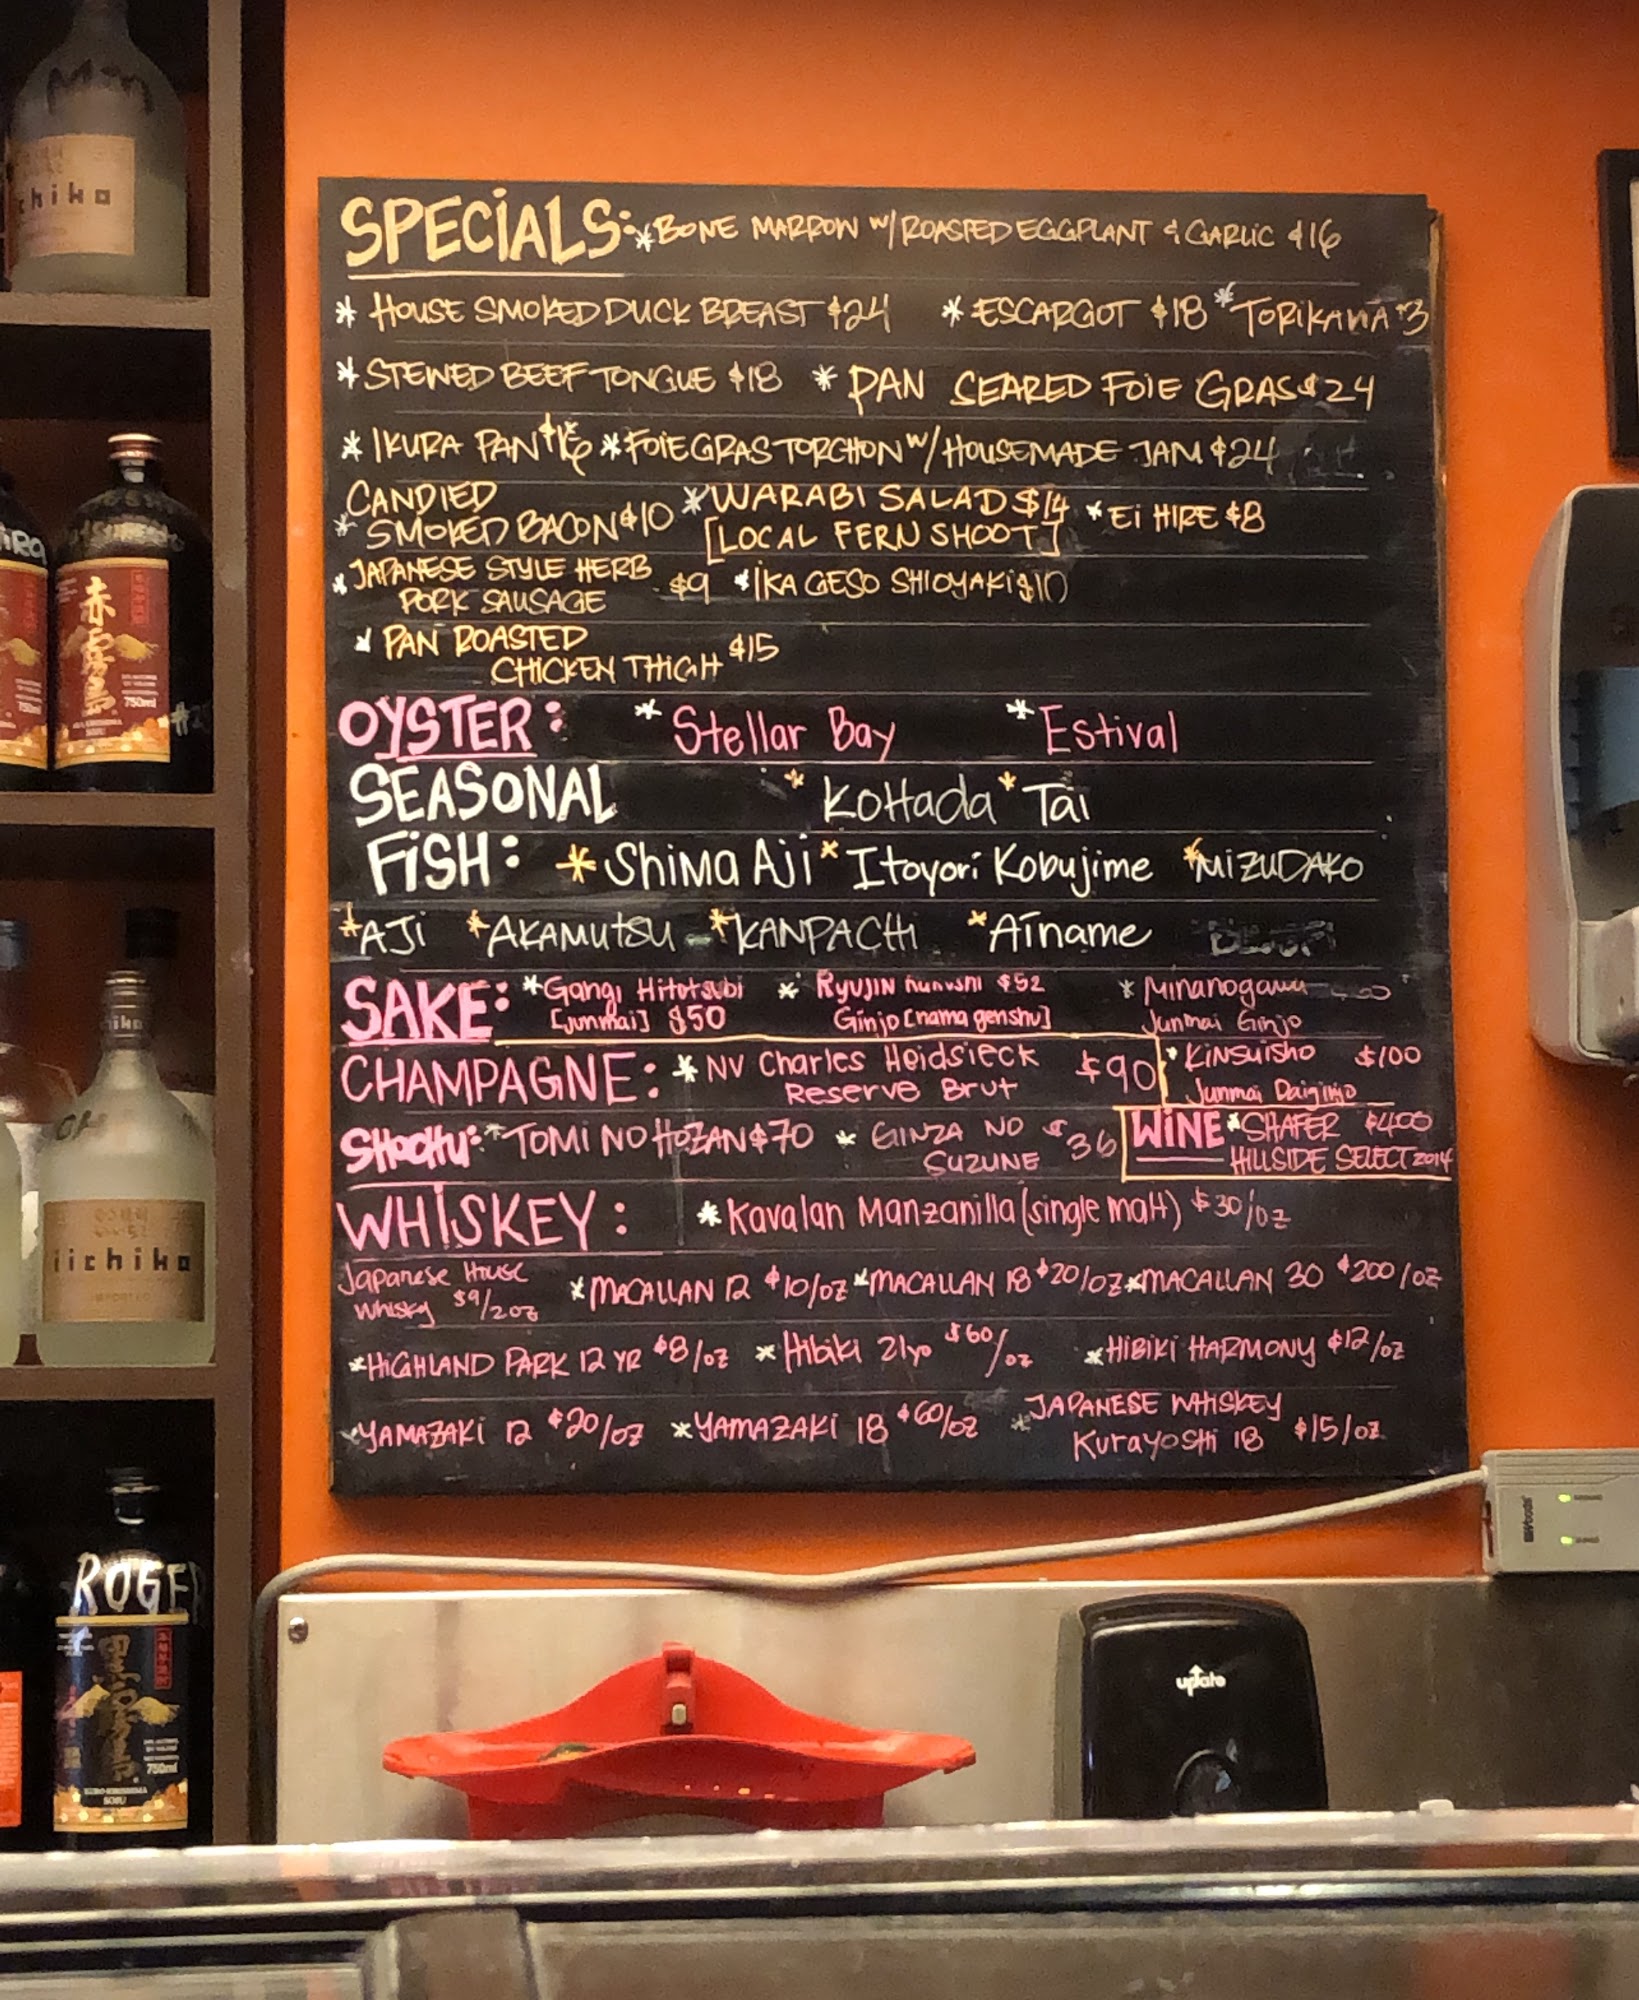 SPECiALS: *BONE MARROW w/ ROASTED EGGPLANT & GARLiC $16
* HOUSE SMOKED DUCK BREAST $24 * ESCARGOT $18 * TORIKAWA $3
* STEWED BEEF TONGUE $18 * PAN SEARED FOIE GRAS $24
* IKURA PAN $16 * FOIE GRAS TORCHON w/ HOUSEMADE JAM $24
* CANDIED SMOKED BACON $10 * WARABI SALAD $14 * Ei HIRE $8
[LOCAL FERN SHOOT]
* JAPANESE STYLE HERB PORK SAUSAGE $9 * IKA GESO SHIOYAKI $10
* PAN ROASTED CHICKEN THIGH $15
OYSTER: * Stellar Bay * Estival
SEASONAL * KoHada * Tai
FiSH: * Shima Aji * Itoyori Kobujime * MiZUDAKO
* AJi * AKAMUtSU * KANPACHi * Ainame
SAKE: * Gangi Hitotsubi [Junmai] $50 * RYUJIN $52 Ginjo [nama genshu] * Minanogawa Junmai Ginjo
CHAMPAGNE: * NV Charles Heidsieck Reserve Brut $90 * KiNSUiSHO $100 Junmai Daiginjo
SHoCHu: * TOMI NO HOZAN $70 * GINZA NO SUZUNE $36 WiNE * SHAFER $400
HILLSIDE SELECT 2014
WHISKEY: * Kavalan Manzanilla (single malt) $30/oz
Japanese House Whisky $9/2oz * MACALLAN 12 $10/oz * MACALLAN 18 $20/oz * MACALLAN 30 $200/oz
* HiGHLAND PARK 12 YR $8/oz * Hibiki 21yo $60/oz * HiBiKi HARMONY $12/oz
* YAMAZAKi 12 $20/oz * YAMAZAKi 18 $60/oz * JAPANESE WHISKEY KurayoSHi 18 $15/oz
chiko
赤霧島
750ml
iichiko
IMPORTED
ROGER
750ml
uptato